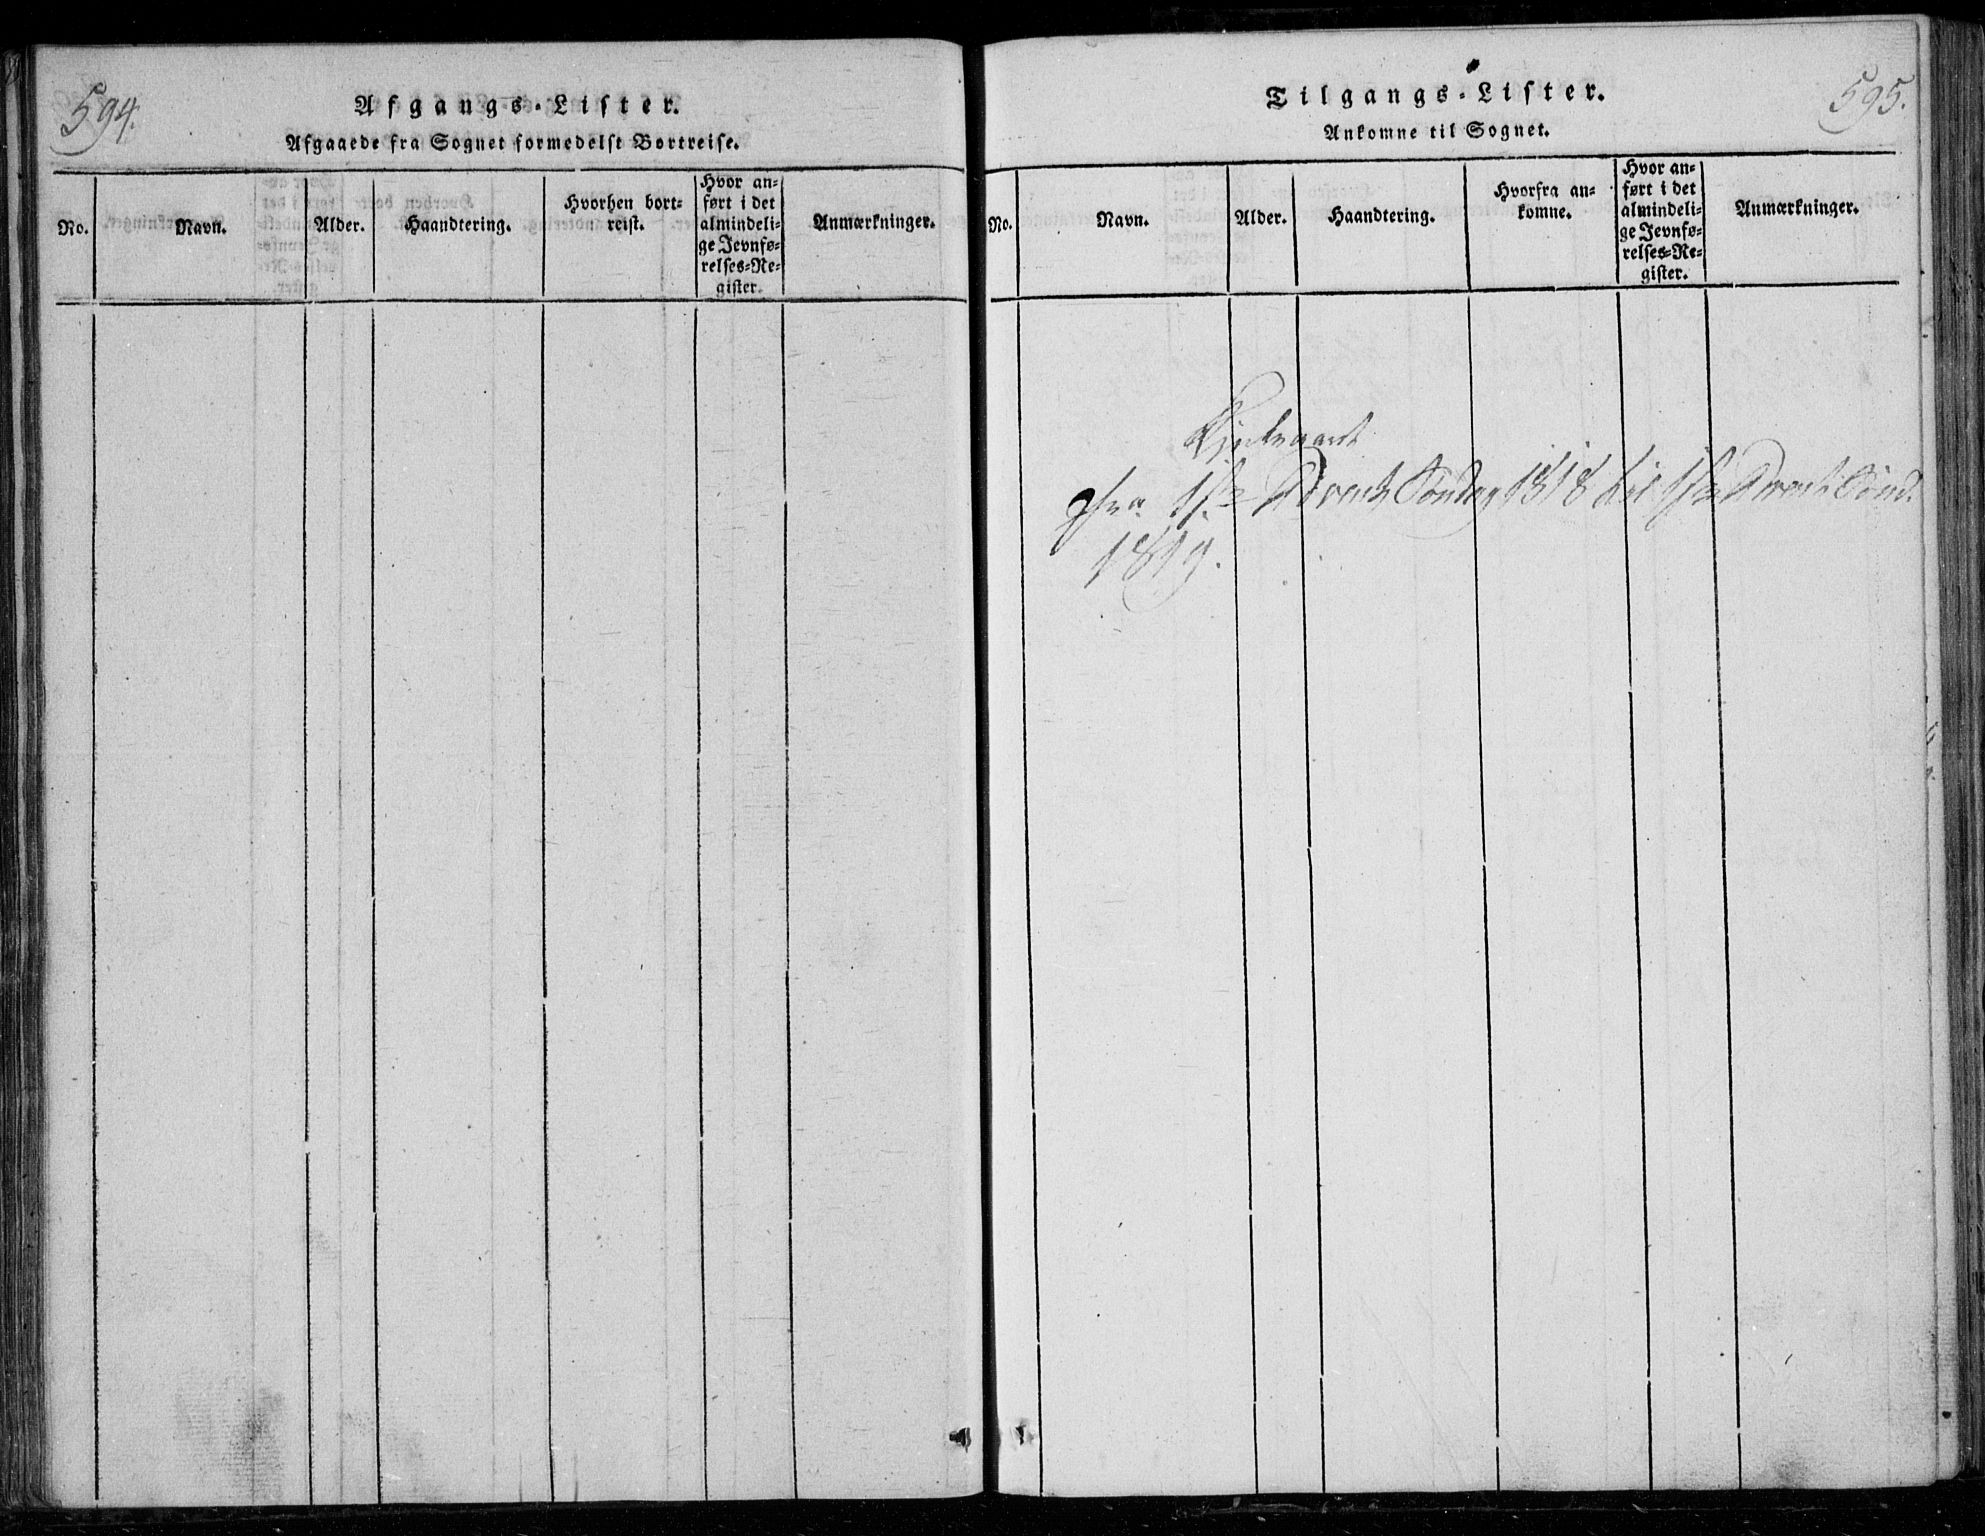 594.
Afgangs-Lister.
Afgaaede fra Sognet formedelst Bortreise.
No.
Navn.
Alder.
Haandtering.
Hvorhen bort-
reist.
Hvor an-
ført i det
almindeli-
ge Jevnfø-
relses-Re-
gister.
Anmærkninger.
595.
Tilgangs-Lister.
Ankomne til Sognet.
No.
Navn.
Alder.
Haandtering.
Hvorfra an-
komne.
Hvor an-
ført i det
almindeli-
ge Jevnfø-
relses-Re-
gister.
Anmærkninger.
fra 1ste Advents Søndag 1818 til 1ste Advents Sønd.
1819.